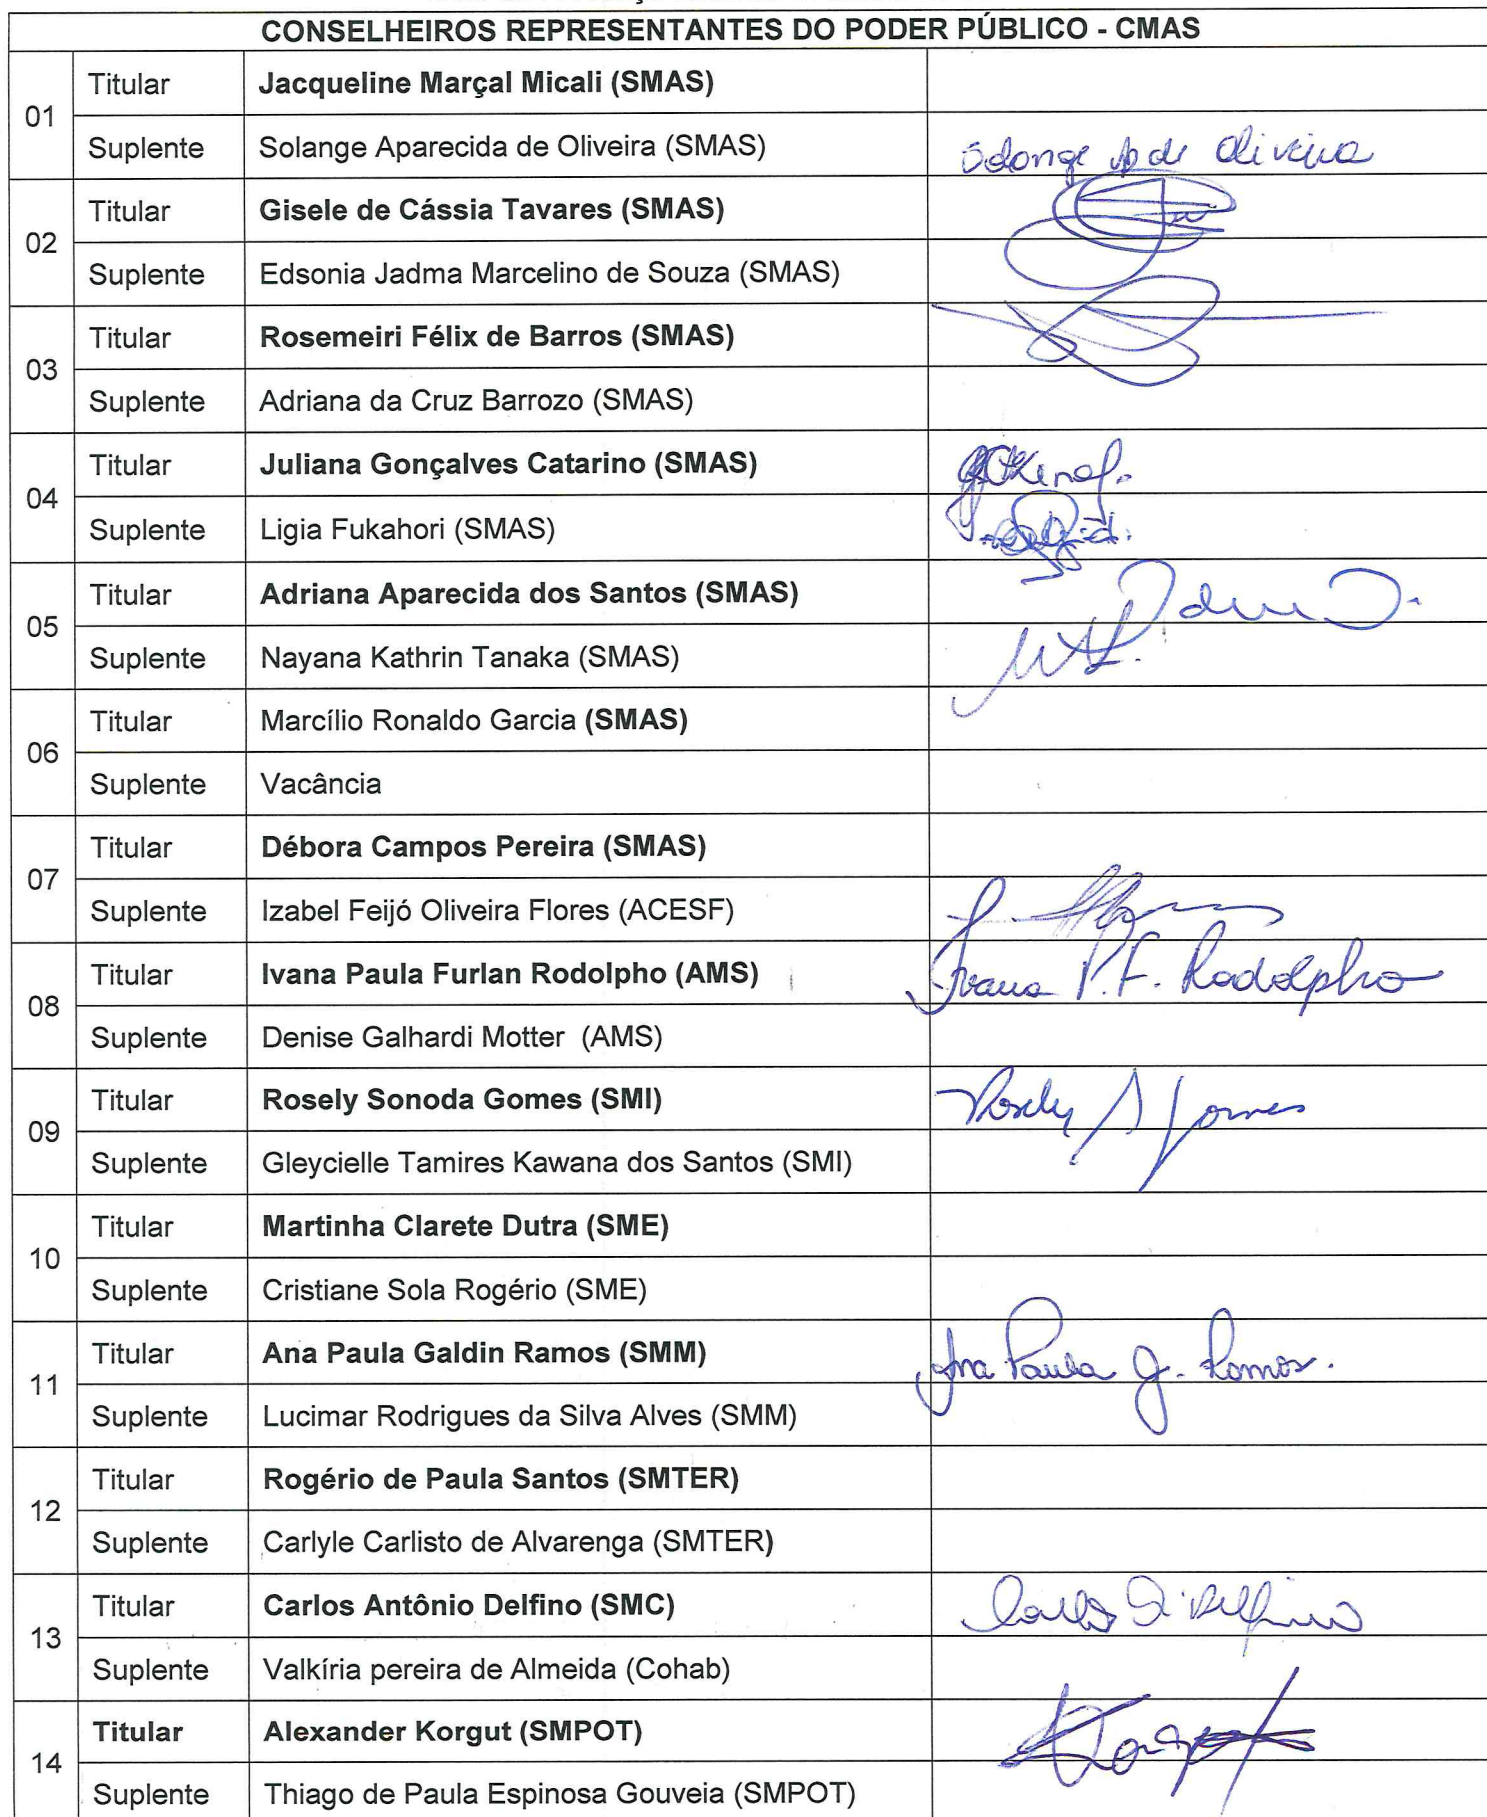 CONSELHEIROS REPRESENTANTES DO PODER PÚBLICO - CMAS
01
Titular Jacqueline Marçal Micali (SMAS)
Suplente Solange Aparecida de Oliveira (SMAS) Solange Ap de Oliveira
02
Titular Gisele de Cássia Tavares (SMAS)
Suplente Edsonia Jadma Marcelino de Souza (SMAS)
03
Titular Rosemeiri Félix de Barros (SMAS)
Suplente Adriana da Cruz Barrozo (SMAS)
04
Titular Juliana Gonçalves Catarino (SMAS)
Suplente Ligia Fukahori (SMAS)
05
Titular Adriana Aparecida dos Santos (SMAS)
Suplente Nayana Kathrin Tanaka (SMAS)
06
Titular Marcílio Ronaldo Garcia (SMAS)
Suplente Vacância
07
Titular Débora Campos Pereira (SMAS)
Suplente Izabel Feijó Oliveira Flores (ACESF)
08
Titular Ivana Paula Furlan Rodolpho (AMS) Ivana P. F. Rodolpho
Suplente Denise Galhardi Motter (AMS)
09
Titular Rosely Sonoda Gomes (SMI) Rosely S Gomes
Suplente Gleycielle Tamires Kawana dos Santos (SMI)
10
Titular Martinha Clarete Dutra (SME)
Suplente Cristiane Sola Rogério (SME)
11
Titular Ana Paula Galdin Ramos (SMM) Ana Paula G. Ramos.
Suplente Lucimar Rodrigues da Silva Alves (SMM)
12
Titular Rogério de Paula Santos (SMTER)
Suplente Carlyle Carlisto de Alvarenga (SMTER)
13
Titular Carlos Antônio Delfino (SMC)
Suplente Valkíria pereira de Almeida (Cohab)
14
Titular Alexander Korgut (SMPOT)
Suplente Thiago de Paula Espinosa Gouveia (SMPOT)